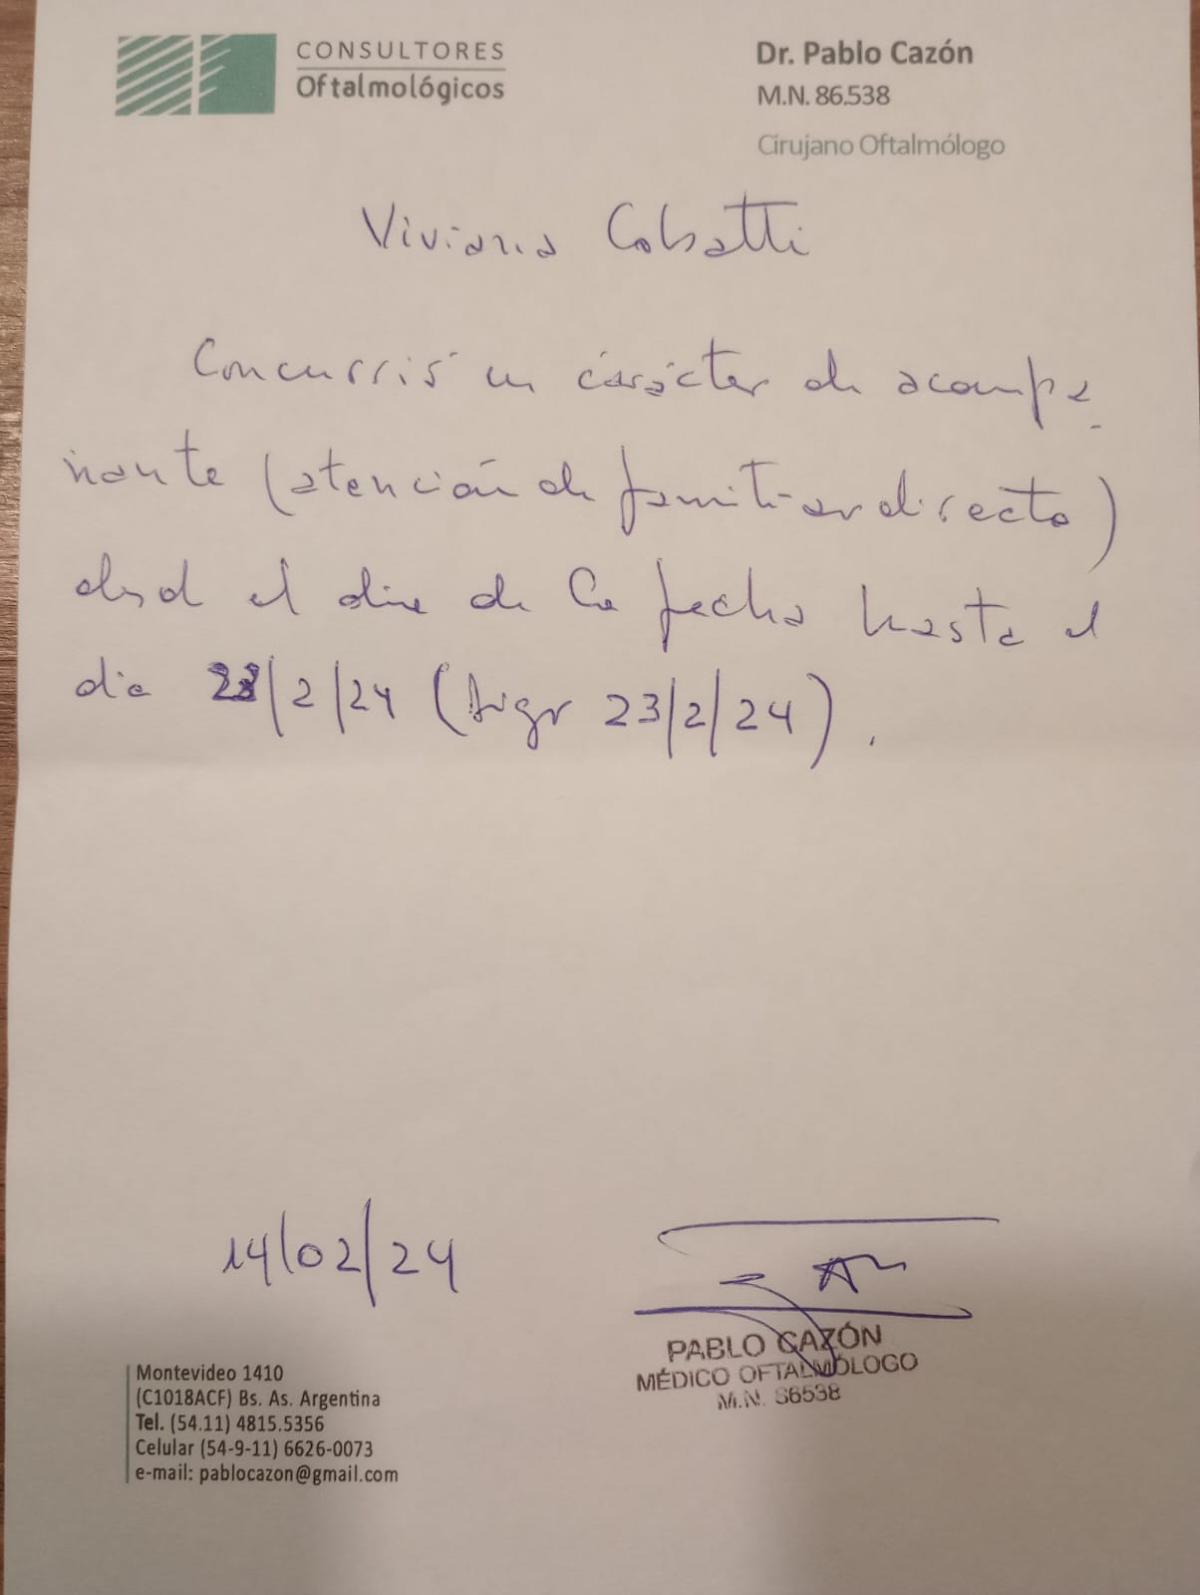 CONSULTORES
Oftalmológicos
Dr. Pablo Cazón
M.N. 86.538
Cirujano Oftalmólogo
Viviana Cobatti
Concurrió en carácter de acompa
ñante (atención de familiar directo)
desd el dia de la fecha hasta el
dia 23/2/24 (digo 23/2/24).
14/02/24
PABLO CAZÓN
MÉDICO OFTALMÓLOGO
M.N. 86538
Montevideo 1410
(C1018ACF) Bs. As. Argentina
Tel. (54.11) 4815.5356
Celular (54-9-11) 6626-0073
e-mail: pablocazon@gmail.com